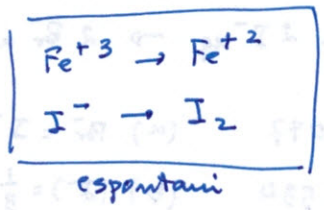 Fe⁺³ → Fe⁺²
I⁻ → I₂
espontani